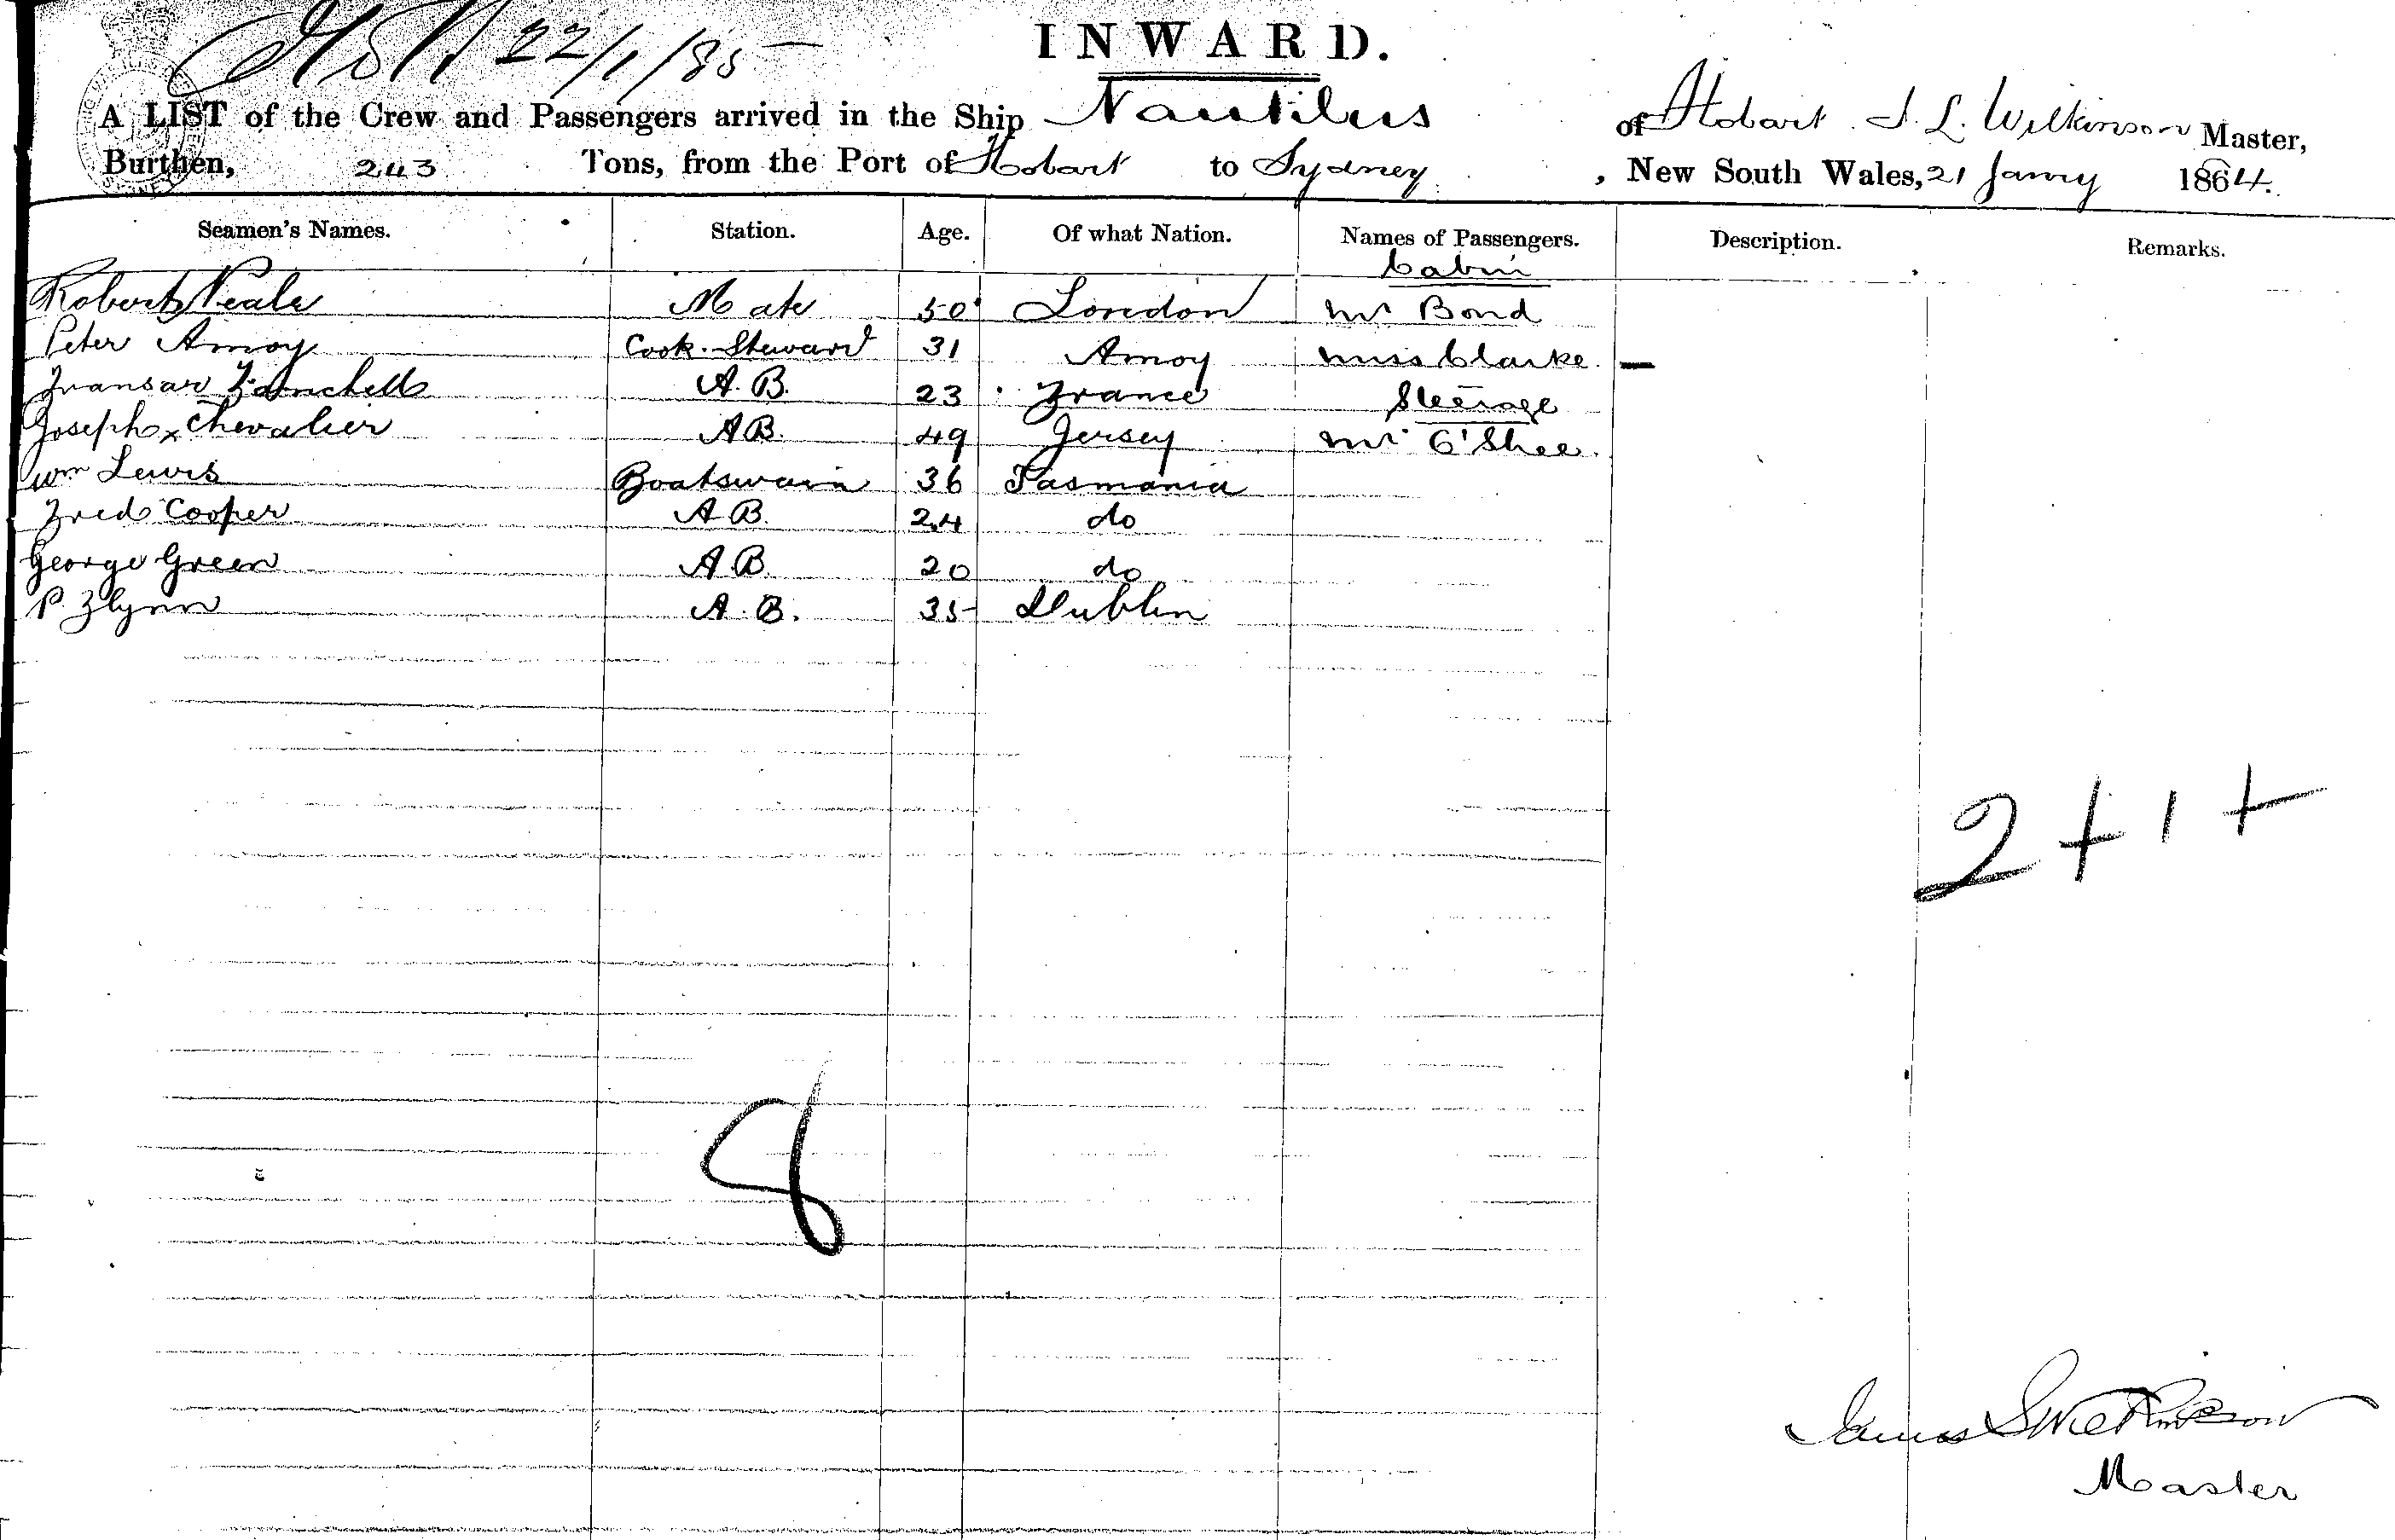 22/1/85
INWARD.
A LIST of the Crew and Passengers arrived in the Ship Nautilus of Hobart J. L. Wilkinson Master,
Burthen, 243 Tons, from the Port of Hobart to Sydney, New South Wales, 21 Janry 1864.
Seamen's Names. Station. Age. Of what Nation. Names of Passengers. Description. Remarks.
Cabin
Robert Neale Mate 50 London Mr Bond
Peter Amoy Cook. Steward 31 Amoy Miss Clarke. —
A. B. 23 France Steerage
Joseph x Chevalier A B. 49 Jersey Mr O'Shee.
Wm Lewis Boatswain 36 Tasmania
Fred Cooper A B. 24 do
George Green A B. 20 do
P. Flynn A. B. 35 Dublin
2 + 1 +
8
James L Wilkinson
Master